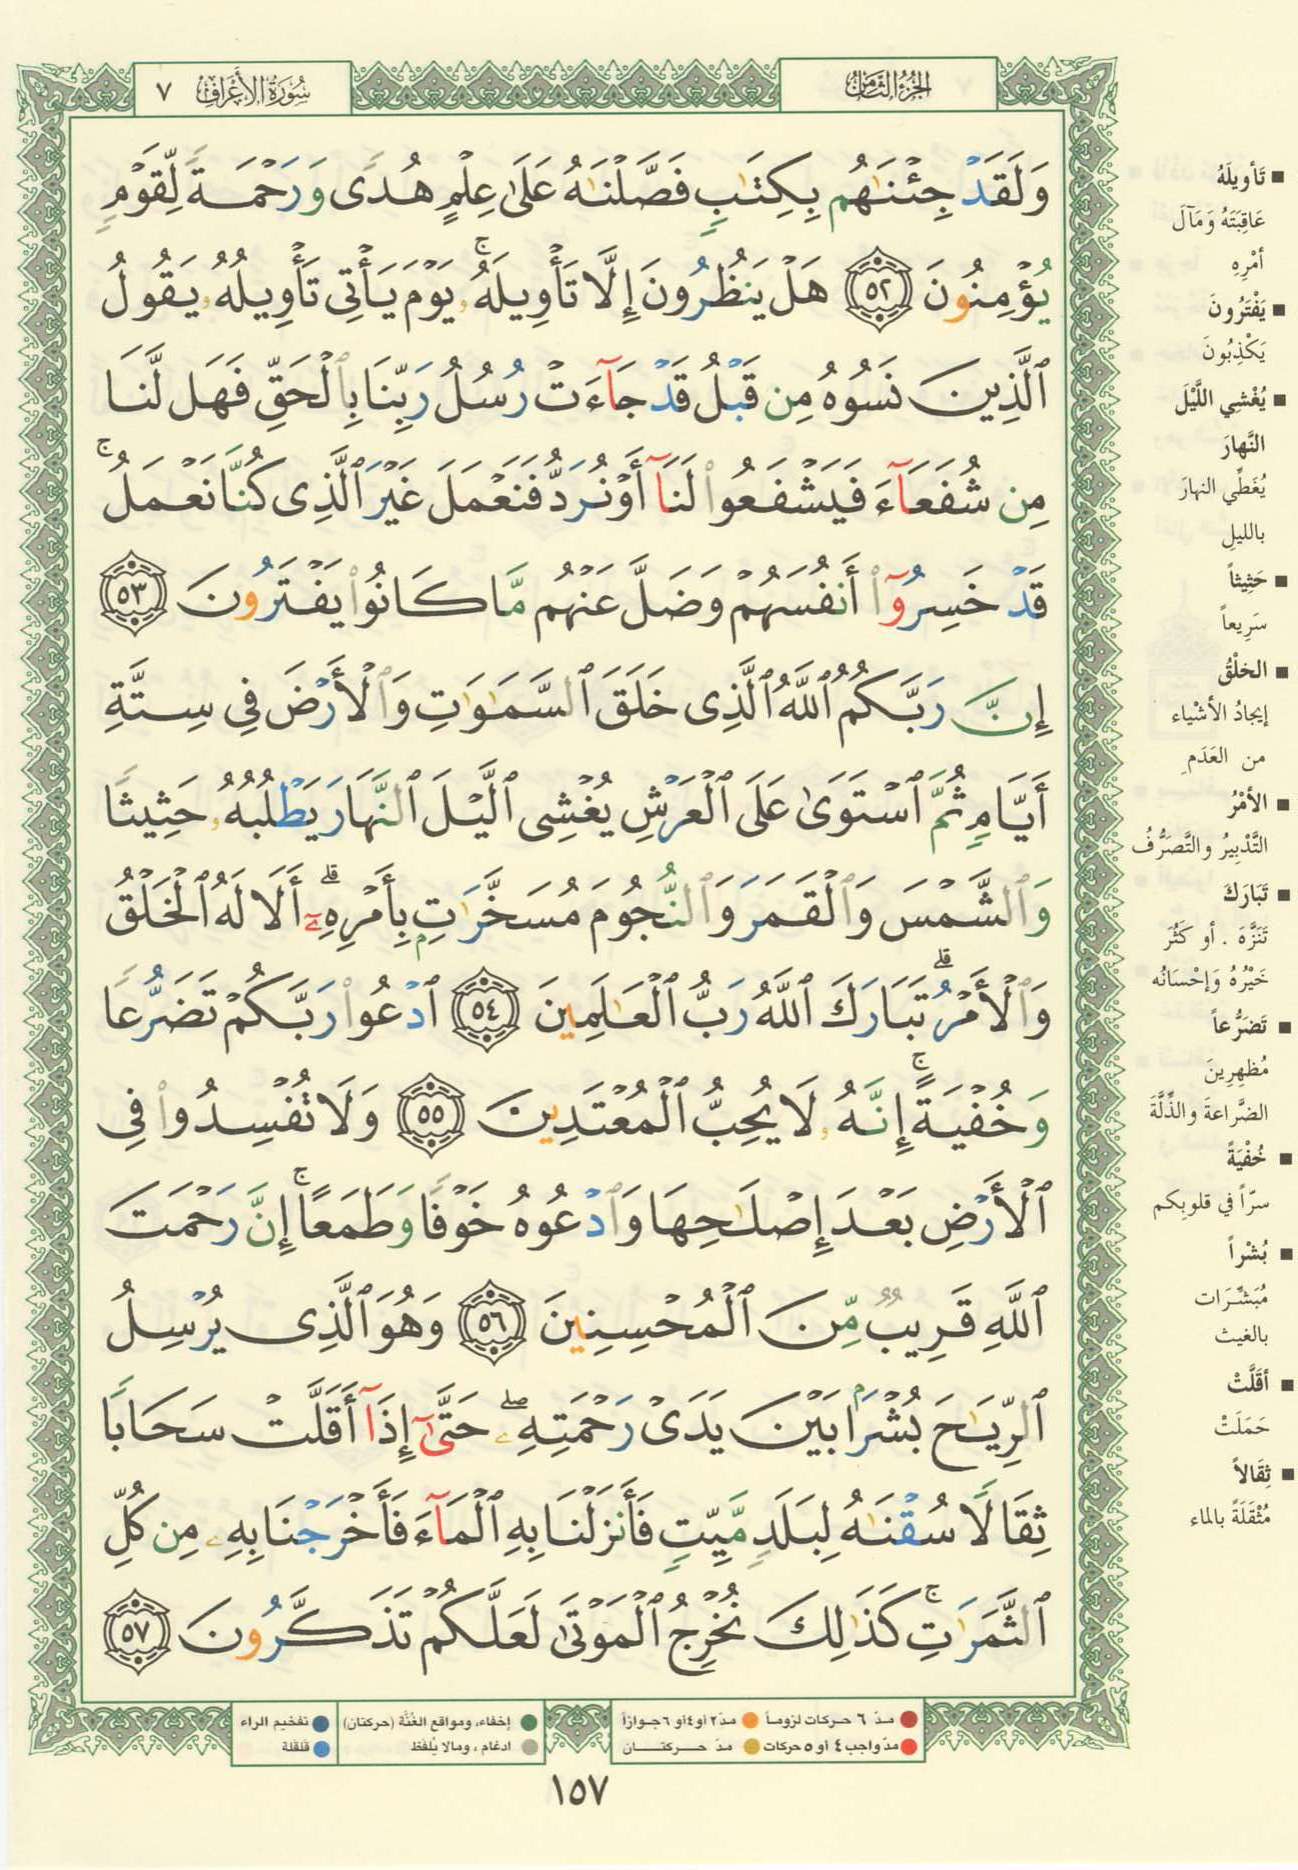 الجزء الثامن
سورة الأعراف ٧
وَلَقَدْ جِئْنَٰهُم بِكِتَٰبٍ فَصَّلْنَٰهُ عَلَىٰ عِلْمٍ هُدًى وَرَحْمَةً لِّقَوْمٍ
يُؤْمِنُونَ ٥٢ هَلْ يَنظُرُونَ إِلَّا تَأْوِيلَهُۥ ۚ يَوْمَ يَأْتِى تَأْوِيلُهُۥ يَقُولُ
ٱلَّذِينَ نَسُوهُ مِن قَبْلُ قَدْ جَآءَتْ رُسُلُ رَبِّنَا بِٱلْحَقِّ فَهَل لَّنَا
مِن شُفَعَآءَ فَيَشْفَعُوا۟ لَنَآ أَوْ نُرَدُّ فَنَعْمَلَ غَيْرَ ٱلَّذِى كُنَّا نَعْمَلُ ۚ
قَدْ خَسِرُوٓا۟ أَنفُسَهُمْ وَضَلَّ عَنْهُم مَّا كَانُوا۟ يَفْتَرُونَ ٥٣
إِنَّ رَبَّكُمُ ٱللَّهُ ٱلَّذِى خَلَقَ ٱلسَّمَٰوَٰتِ وَٱلْأَرْضَ فِى سِتَّةِ
أَيَّامٍ ثُمَّ ٱسْتَوَىٰ عَلَى ٱلْعَرْشِ يُغْشِى ٱلَّيْلَ ٱلنَّهَارَ يَطْلُبُهُۥ حَثِيثًا
وَٱلشَّمْسَ وَٱلْقَمَرَ وَٱلنُّجُومَ مُسَخَّرَٰتٍۭ بِأَمْرِهِۦٓ ۗ أَلَا لَهُ ٱلْخَلْقُ
وَٱلْأَمْرُ ۗ تَبَارَكَ ٱللَّهُ رَبُّ ٱلْعَٰلَمِينَ ٥٤ ٱدْعُوا۟ رَبَّكُمْ تَضَرُّعًا
وَخُفْيَةً ۚ إِنَّهُۥ لَا يُحِبُّ ٱلْمُعْتَدِينَ ٥٥ وَلَا تُفْسِدُوا۟ فِى
ٱلْأَرْضِ بَعْدَ إِصْلَٰحِهَا وَٱدْعُوهُ خَوْفًا وَطَمَعًا ۚ إِنَّ رَحْمَتَ
ٱللَّهِ قَرِيبٌ مِّنَ ٱلْمُحْسِنِينَ ٥٦ وَهُوَ ٱلَّذِى يُرْسِلُ
ٱلرِّيَٰحَ بُشْرًۢا بَيْنَ يَدَىْ رَحْمَتِهِۦ ۖ حَتَّىٰٓ إِذَآ أَقَلَّتْ سَحَابًا
ثِقَالًا سُقْنَٰهُ لِبَلَدٍ مَّيِّتٍ فَأَنزَلْنَا بِهِ ٱلْمَآءَ فَأَخْرَجْنَا بِهِۦ مِن كُلِّ
ٱلثَّمَرَٰتِ ۚ كَذَٰلِكَ نُخْرِجُ ٱلْمَوْتَىٰ لَعَلَّكُمْ تَذَكَّرُونَ ٥٧
■ تَأويلَهُ
عَاقِبَتَهُ وَمَآلَ
أمْرِهِ
■ يَفْتَرُونَ
يَكْذِبُونَ
■ يُغْشِي اللَّيْلَ
النَّهارَ
يُغَطِّي النهارَ
بالليلِ
■ حَثِيثاً
سَرِيعاً
■ الخلْقُ
إيجادُ الأشْياء
من العَدَمِ
■ الأمْرُ
التَّدْبِيرُ والتَّصَرُّفُ
■ تَبَارَكَ
تَنَزَّهَ . أو كَثُرَ
خَيْرُهُ وَإحْسَانُه
■ تَضَرُّعاً
مُظهِرِينَ
الضَّراعةَ والذِّلَّةَ
■ خُفْيَةً
سرّاً في قلوبِكم
■ بُشْراً
مُبَشِّرَات
بالغيث
■ أقَلَّتْ
حَمَلَتْ
■ ثِقَالاً
مُثْقَلَةً بالماء
مدّ ٦ حركات لزوماً مدّ ٢ أو ٤ أو ٦ جوازاً إخفاء، ومواقع الغُنَّة (حركتان) تفخيم الراء
مدّ واجب ٤ أو ٥ حركات مدّ حركتان ادغام ، ومالا يُلفظ قلقلة
١٥٧